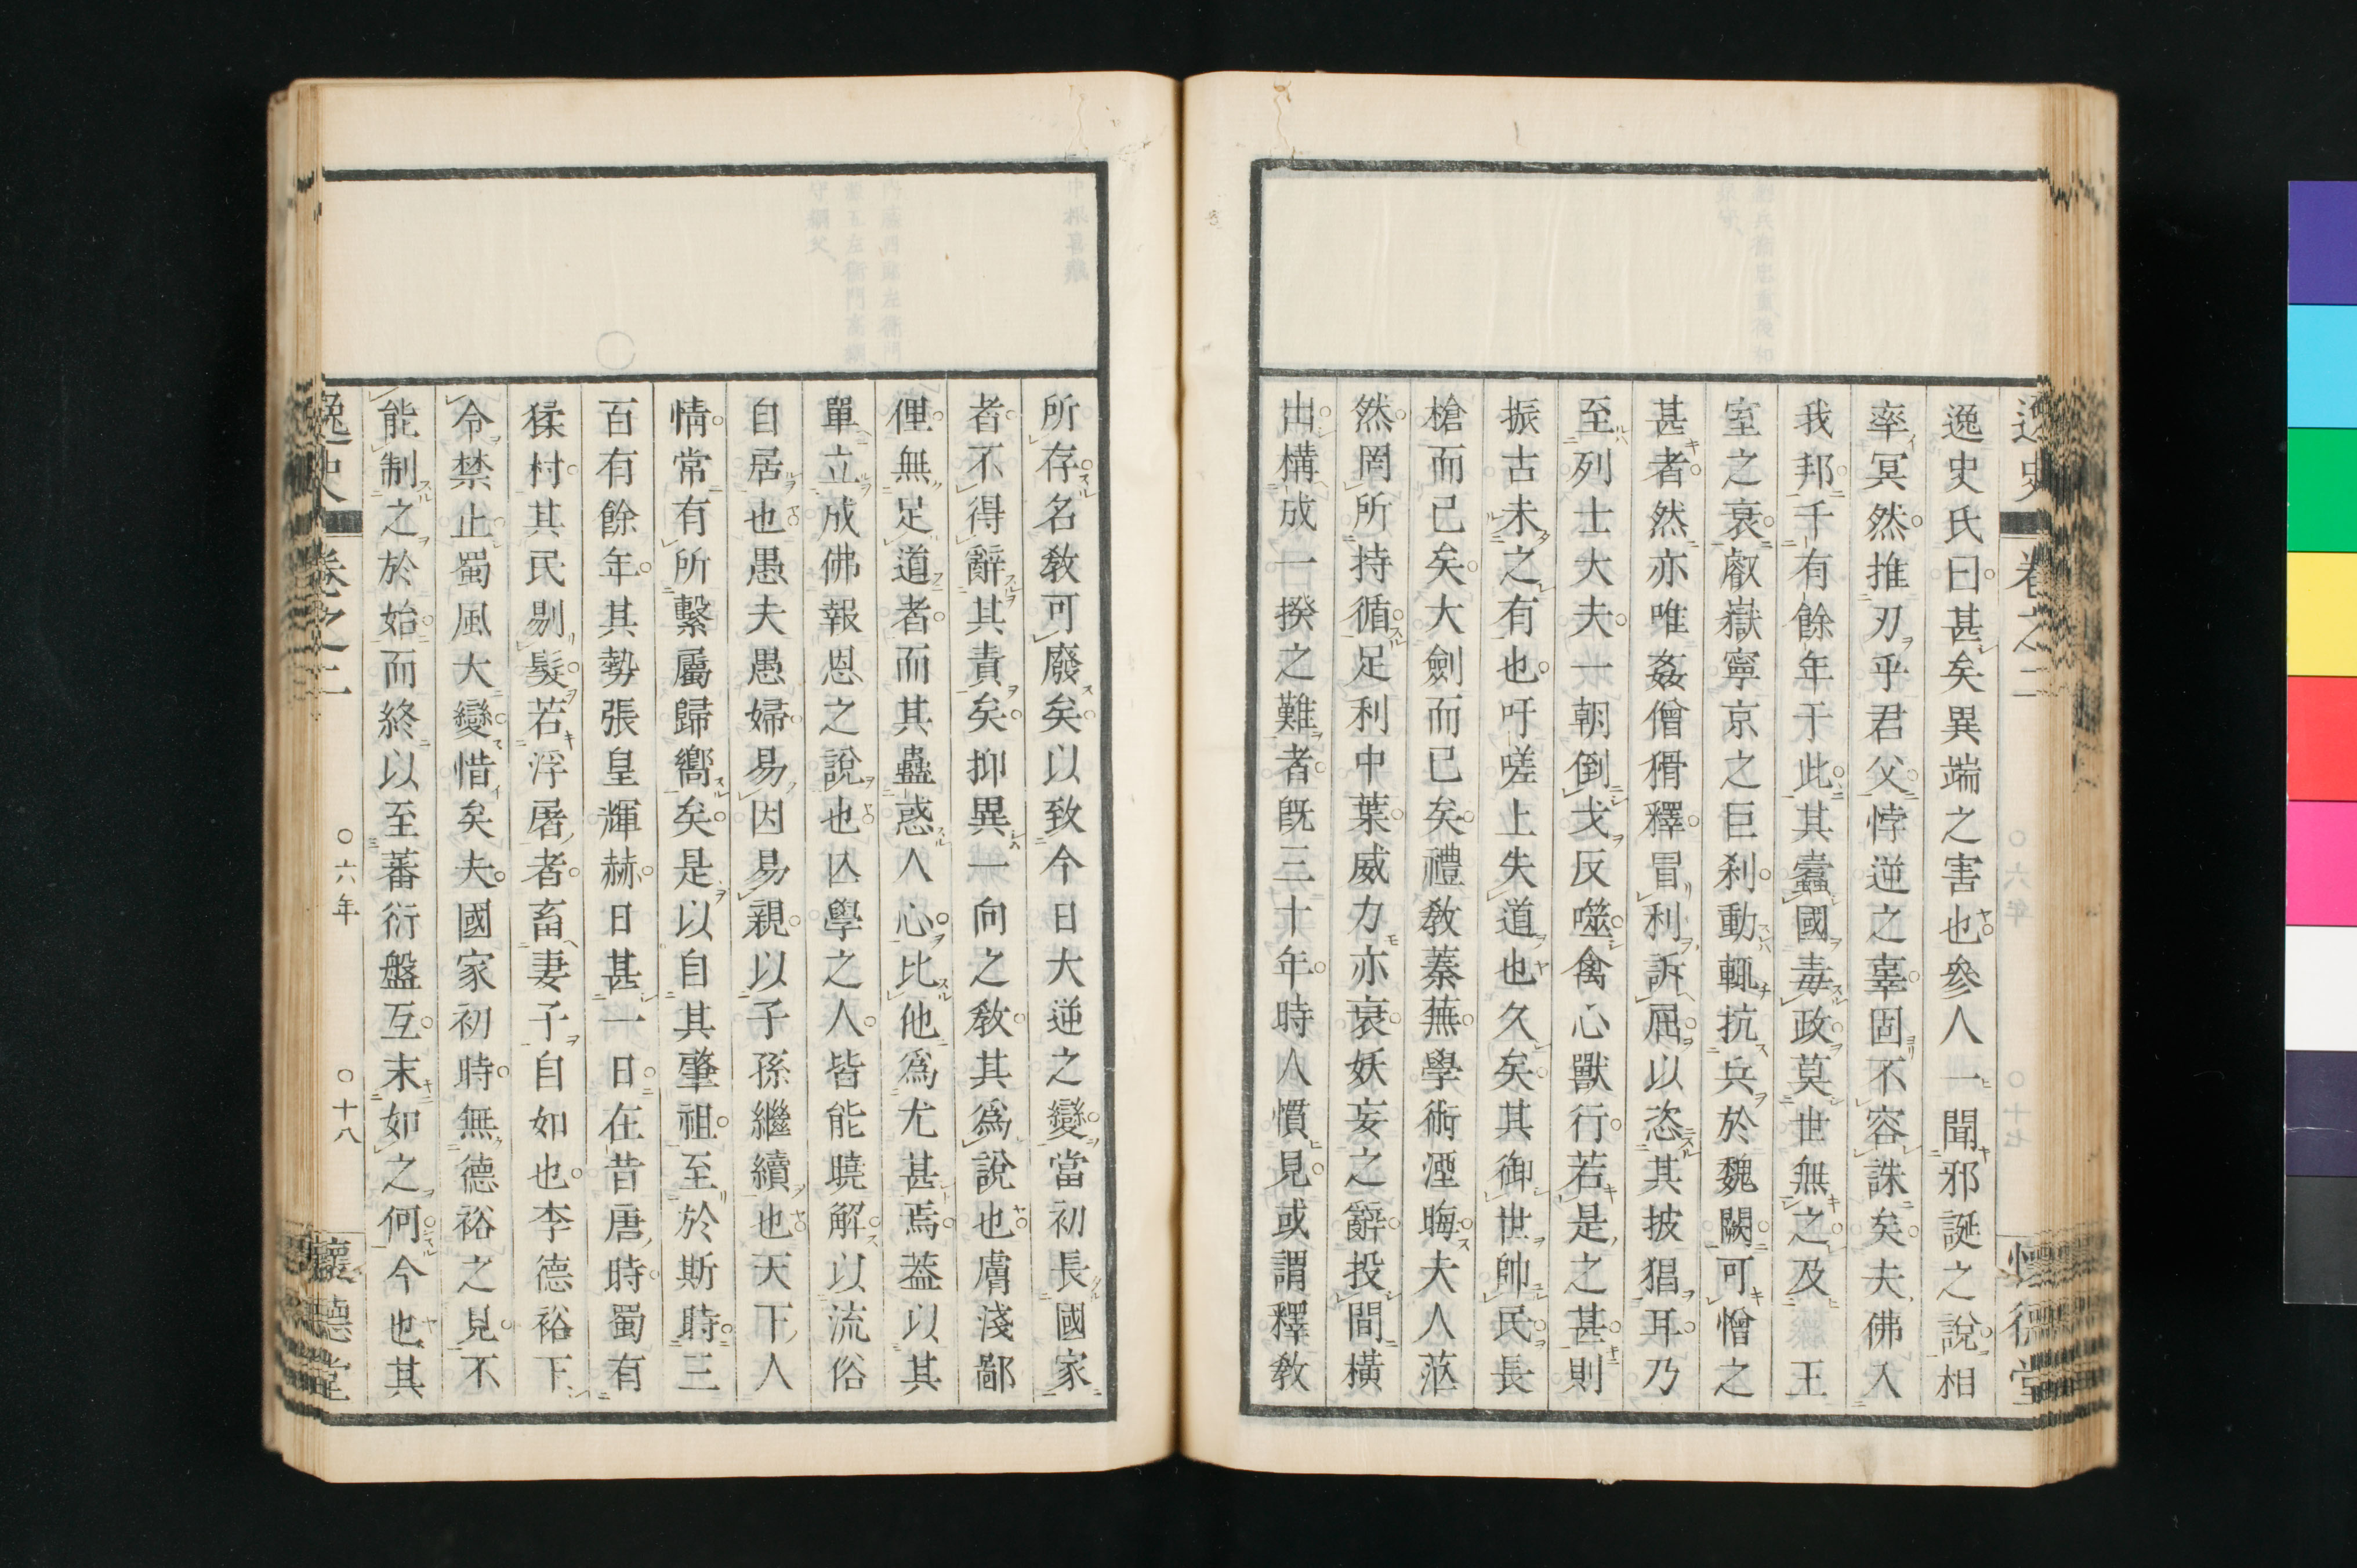 逸史 卷之二
逸史氏曰甚矣異端之害也參人一聞邪誕之說相
率冥然推刃乎君父悖逆之辜固不容誅矣夫佛入
我邦千有餘年于此其蠧國毒政莫世無之及王
室之衰叡嶽寧京之巨刹動輙抗兵於魏闕可憎之
甚者然亦唯姦僧猾釋冒利訴屈以恣其披猖耳乃
至列士大夫一朝倒戈反噬禽心獸行若是之甚則
振古未之有也吁嗟上失道也久矣其御世帥民長
槍而已矣大劍而已矣禮敎蓁蕪學術湮晦夫人茫
然罔所持循足利中葉威力亦衰妖妄之辭投間橫
出構成一揆之難者旣三十年時人慣見或謂釋敎
所存名敎可廢矣以致今日大逆之變當初長國家
者不得辭其責矣抑異一向之敎其爲說也膚淺鄙
俚無足道者而其蠱惑人心比他爲尤甚焉葢以其
單立成佛報恩之說也匹學之人皆能曉解以流俗
自居也愚夫愚婦易因易親以子孫繼續也天下人
情常有所繫屬歸嚮矣是以自其肇祖至於斯時三
百有餘年其勢張皇輝赫日甚一日在昔唐時蜀有
猱村其民剔髮若浮屠者畜妻子自如也李德裕下
令禁止蜀風大變惜矣夫國家初時無德裕之見不
能制之於始而終以至蕃衍盤互末如之何今也其
逸史 卷之二 〇六年 〇十八 懷德堂